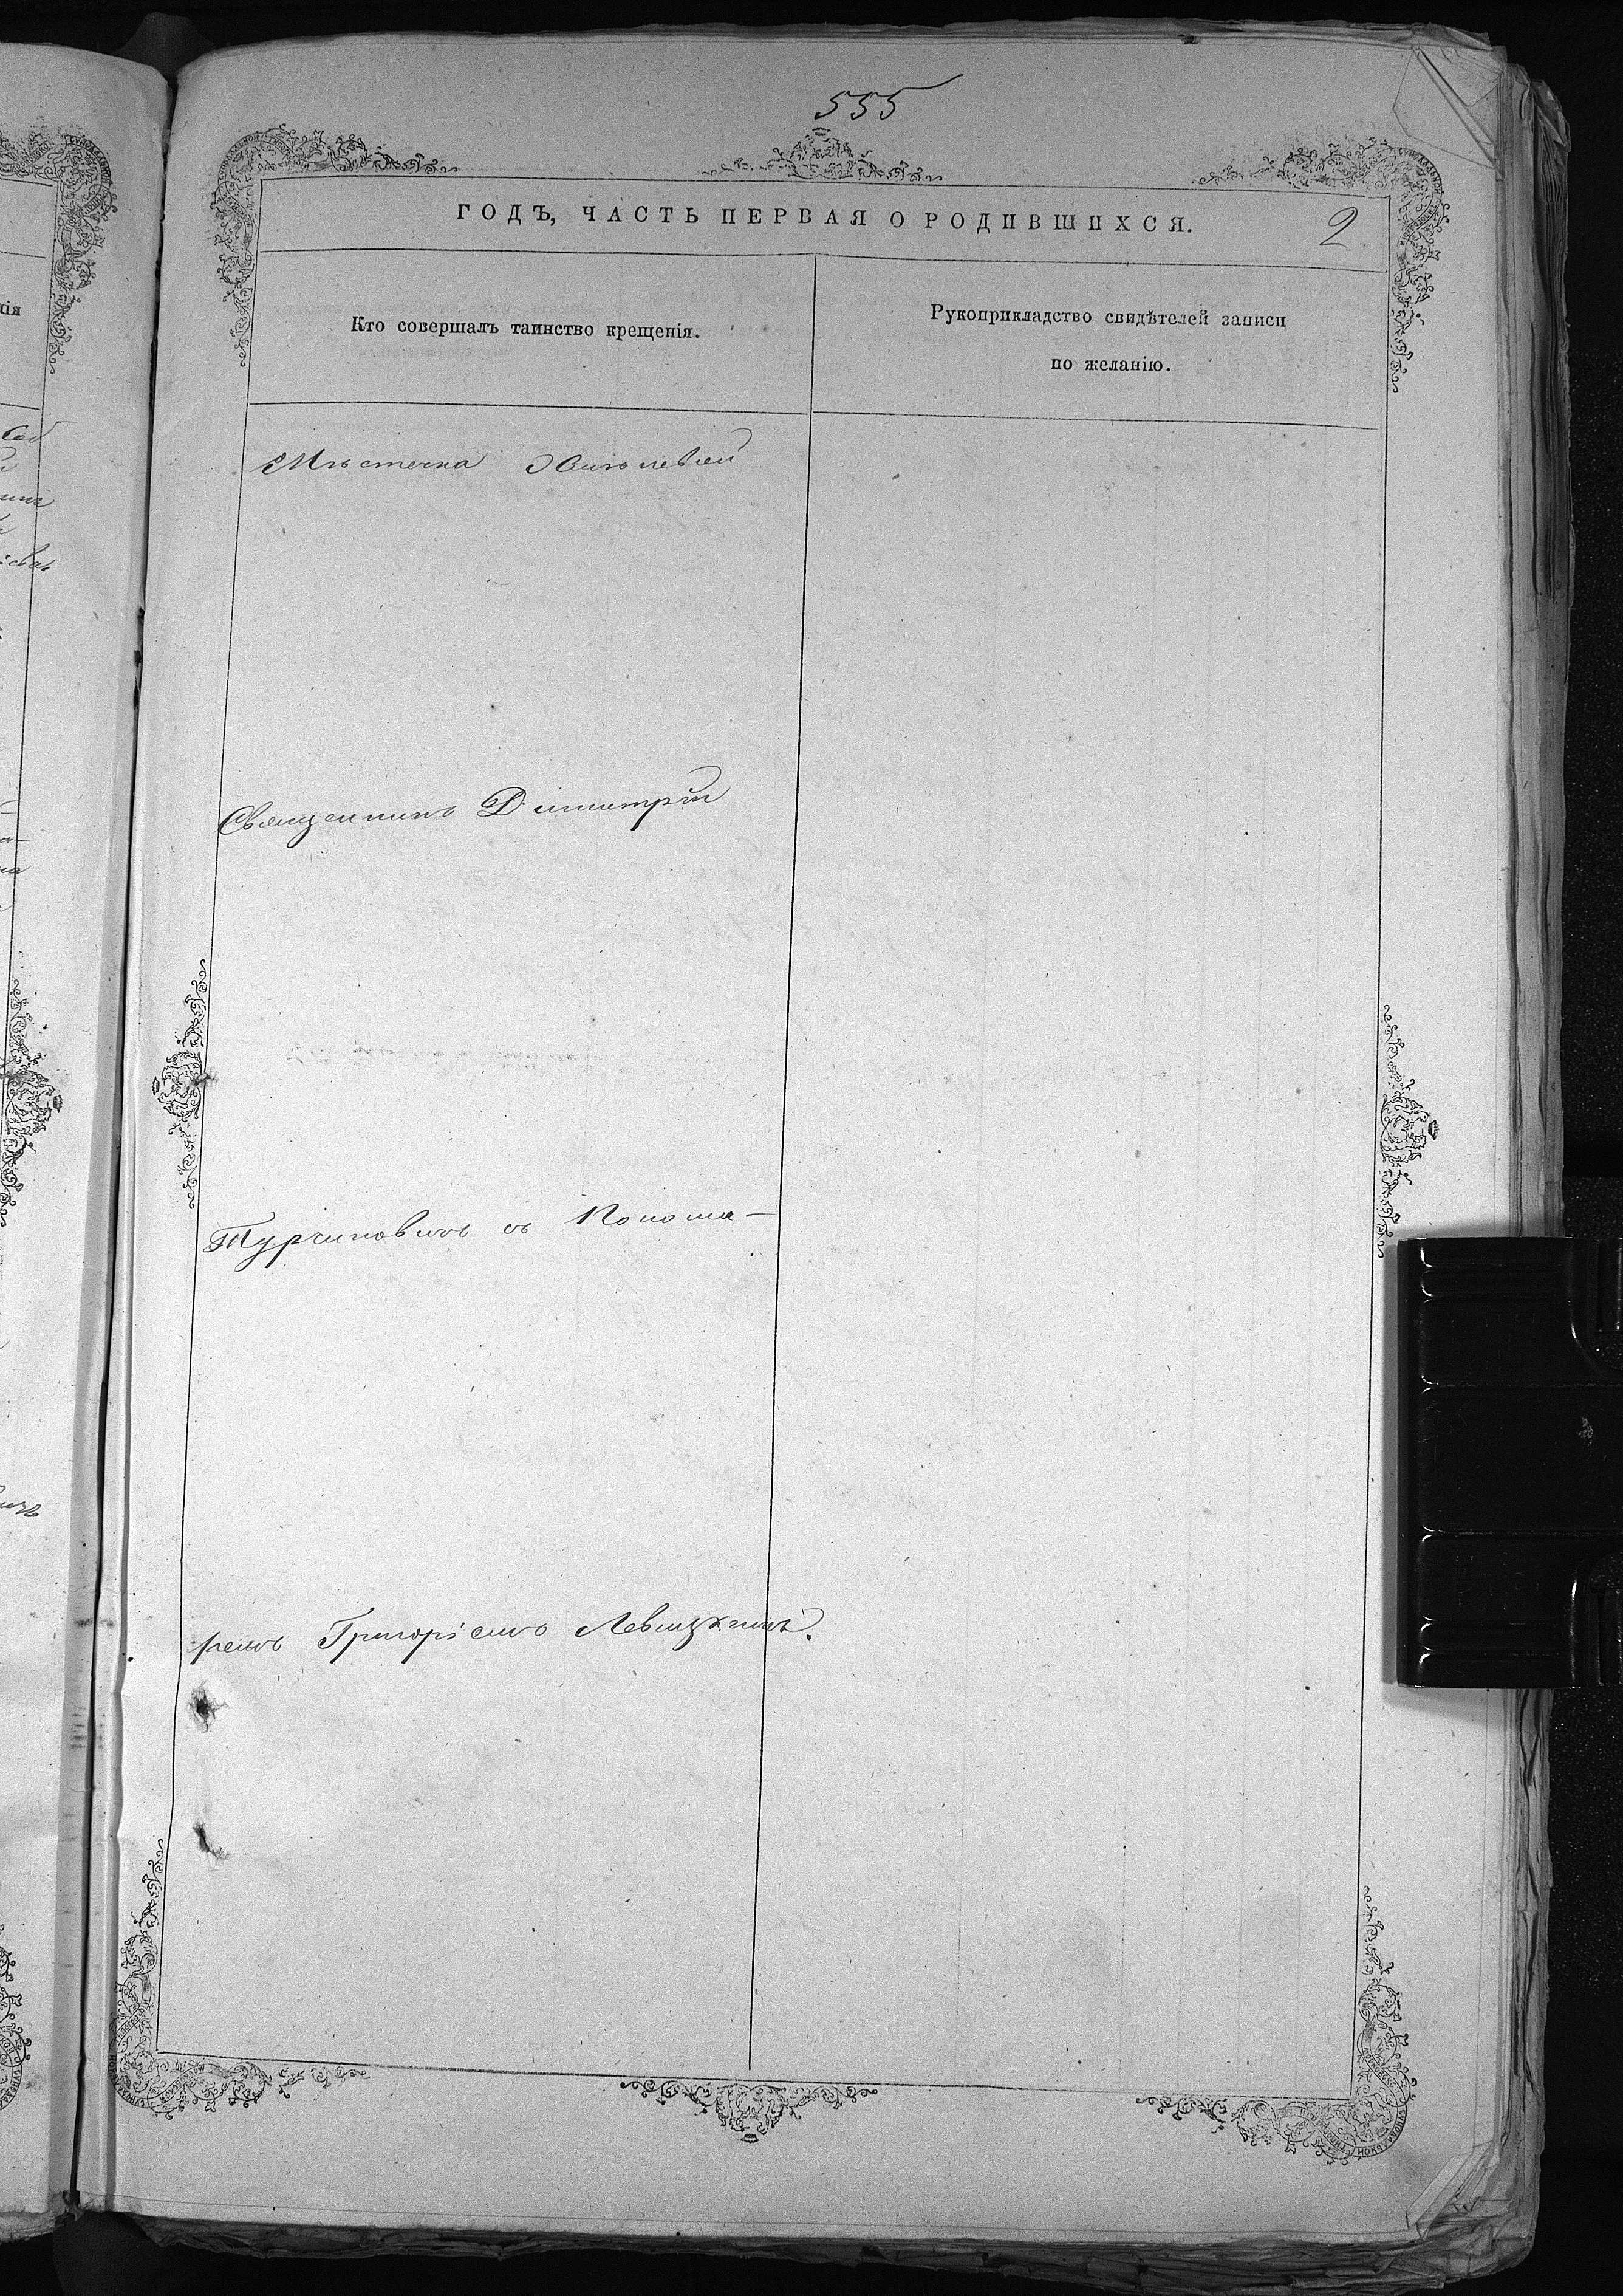 555
ГОДЪ, ЧАСТЬ ПЕРВАЯ О РОДИВШИХСЯ.
2
Кто совершалъ таинство крещенія.
Рукоприкладство свидѣтелей записи
по желанію.
Мѣстечка
Священникъ Димитрій
Турчиновичъ съ Понома-
ремъ Григоріемъ Левицкимъ.